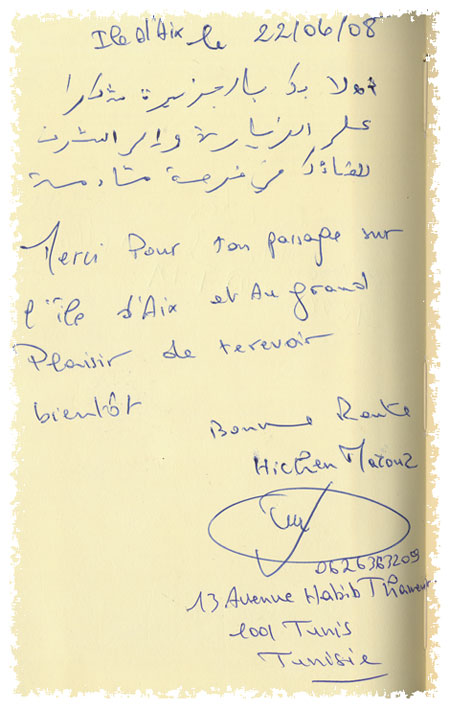 Ile d'Aix le 22/06/08
اهلا بك بالجزيرة شكرا
على الزيارة وإلى التشرف
في فرصة قادمة
Merci Pour ton passage sur
l'île d'Aix et Au grand
Plaisir de terevoir
bientôt
Bonne Route
Hichen
13 Avenue Habib Thameur
1001 Tunis
Tunisie